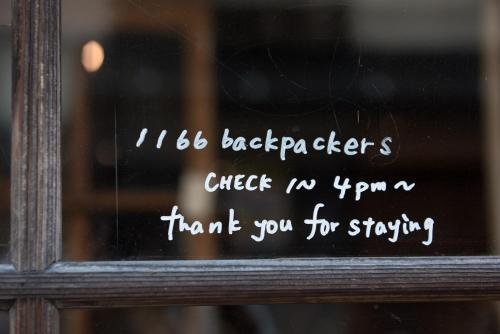 1166 backpackers
CHECK IN 4pm~
thank you for staying